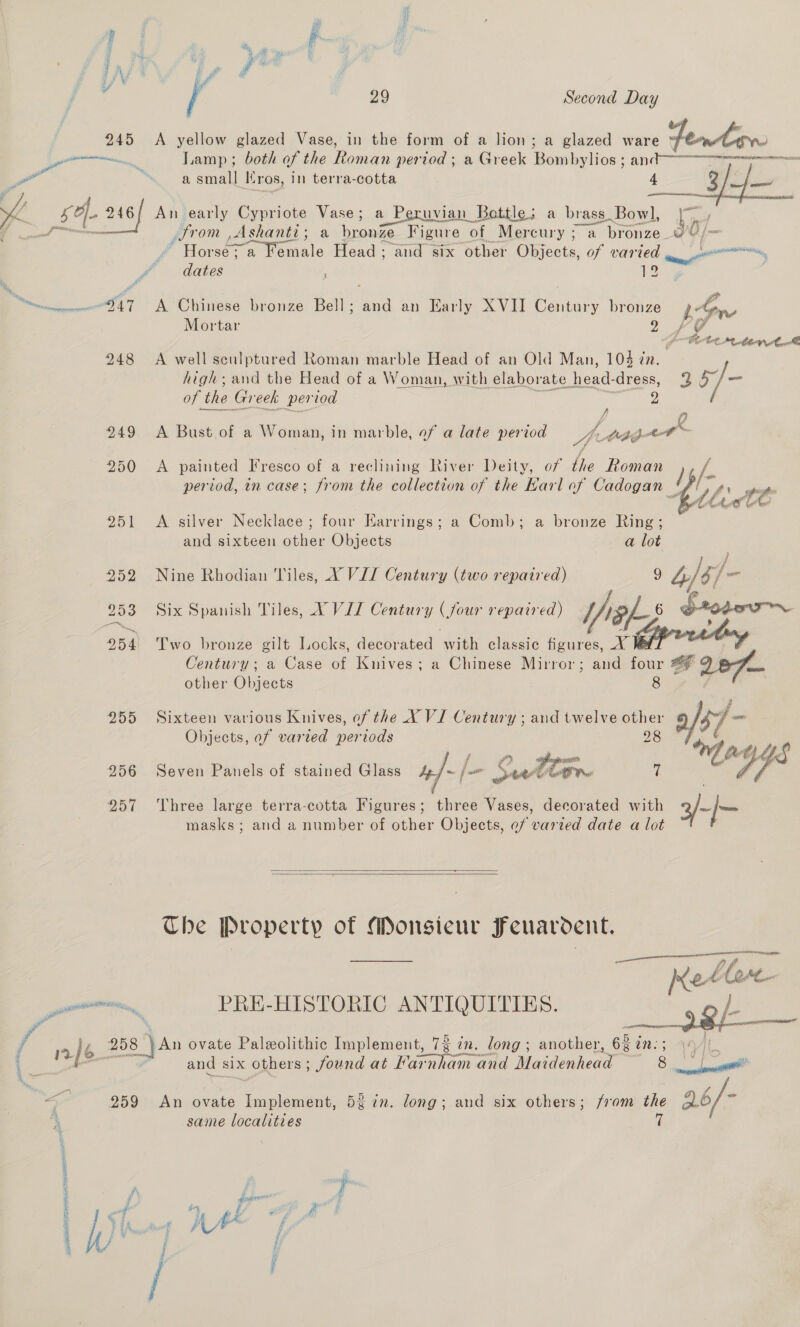 29 Second Day
245 A yellow glazed Vase, in the form of a lion; a glazed ware Fenton
Lamp; both of the Roman period; a Greek Bombylios; and
a small Eros, in terra-cotta 4 3/-/-
246 An early Cypriote Vase; a Peruvian Bottle; a brass Bowl,
from Ashanti; a bronze Figure of Mercury; a bronze 30/-
Horse; a Female Head; and six other Objects, of varied
dates 12
247 A Chinese bronze Bell; and an Early XVII Century bronze
Mortar 2
248 A well sculptured Roman marble Head of an Old Man, 10½ in.
high; and the Head of a Woman, with elaborate head-dress, 35/-
of the Greek period 2
249 A Bust of a Woman, in marble, of a late period
250 A painted Fresco of a reclining River Deity, of the Roman
period, in case; from the collection of the Earl of Cadogan
251 A silver Necklace; four Earrings; a Comb; a bronze Ring;
and sixteen other Objects a lot
252 Nine Rhodian Tiles, XVII Century (two repaired) 9
253 Six Spanish Tiles, XVII Century (four repaired) 6
254 Two bronze gilt Locks, decorated with classic figures, X
Century; a Case of Knives; a Chinese Mirror; and four
other Objects 8
255 Sixteen various Knives, of the XVI Century; and twelve other
Objects, of varied periods 28
256 Seven Panels of stained Glass 4/-/- Sutton 7
257 Three large terra-cotta Figures; three Vases, decorated with 3/-/-
masks; and a number of other Objects, of varied date a lot
The Property of Monsieur Feuardent.
PRE-HISTORIC ANTIQUITIES.
258 An ovate Palæolithic Implement, 7⅜ in. long; another, 6⅜ in.; 
and six others; found at Farnham and Maidenhead 8
259 An ovate Implement, 5⅜ in. long; and six others; from the 26/-
same localities 7